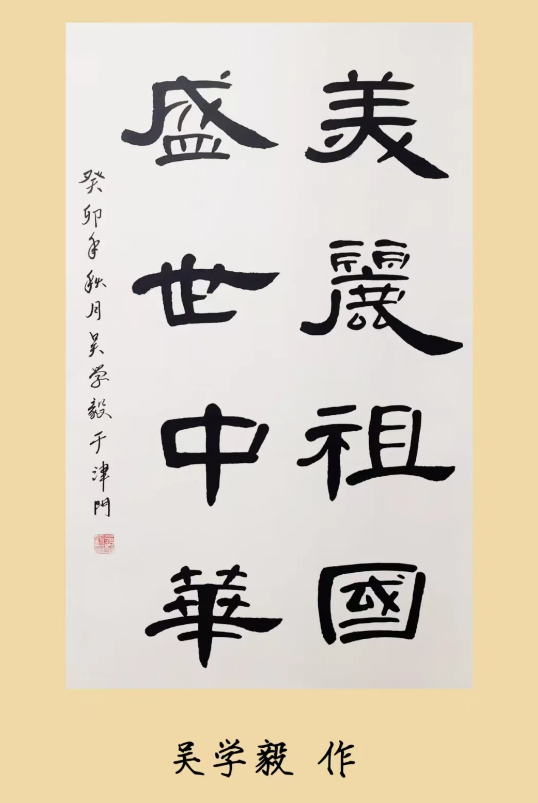 美麗祖國
盛世中華
癸卯年秋月吴学毅于津門
吴学毅 作